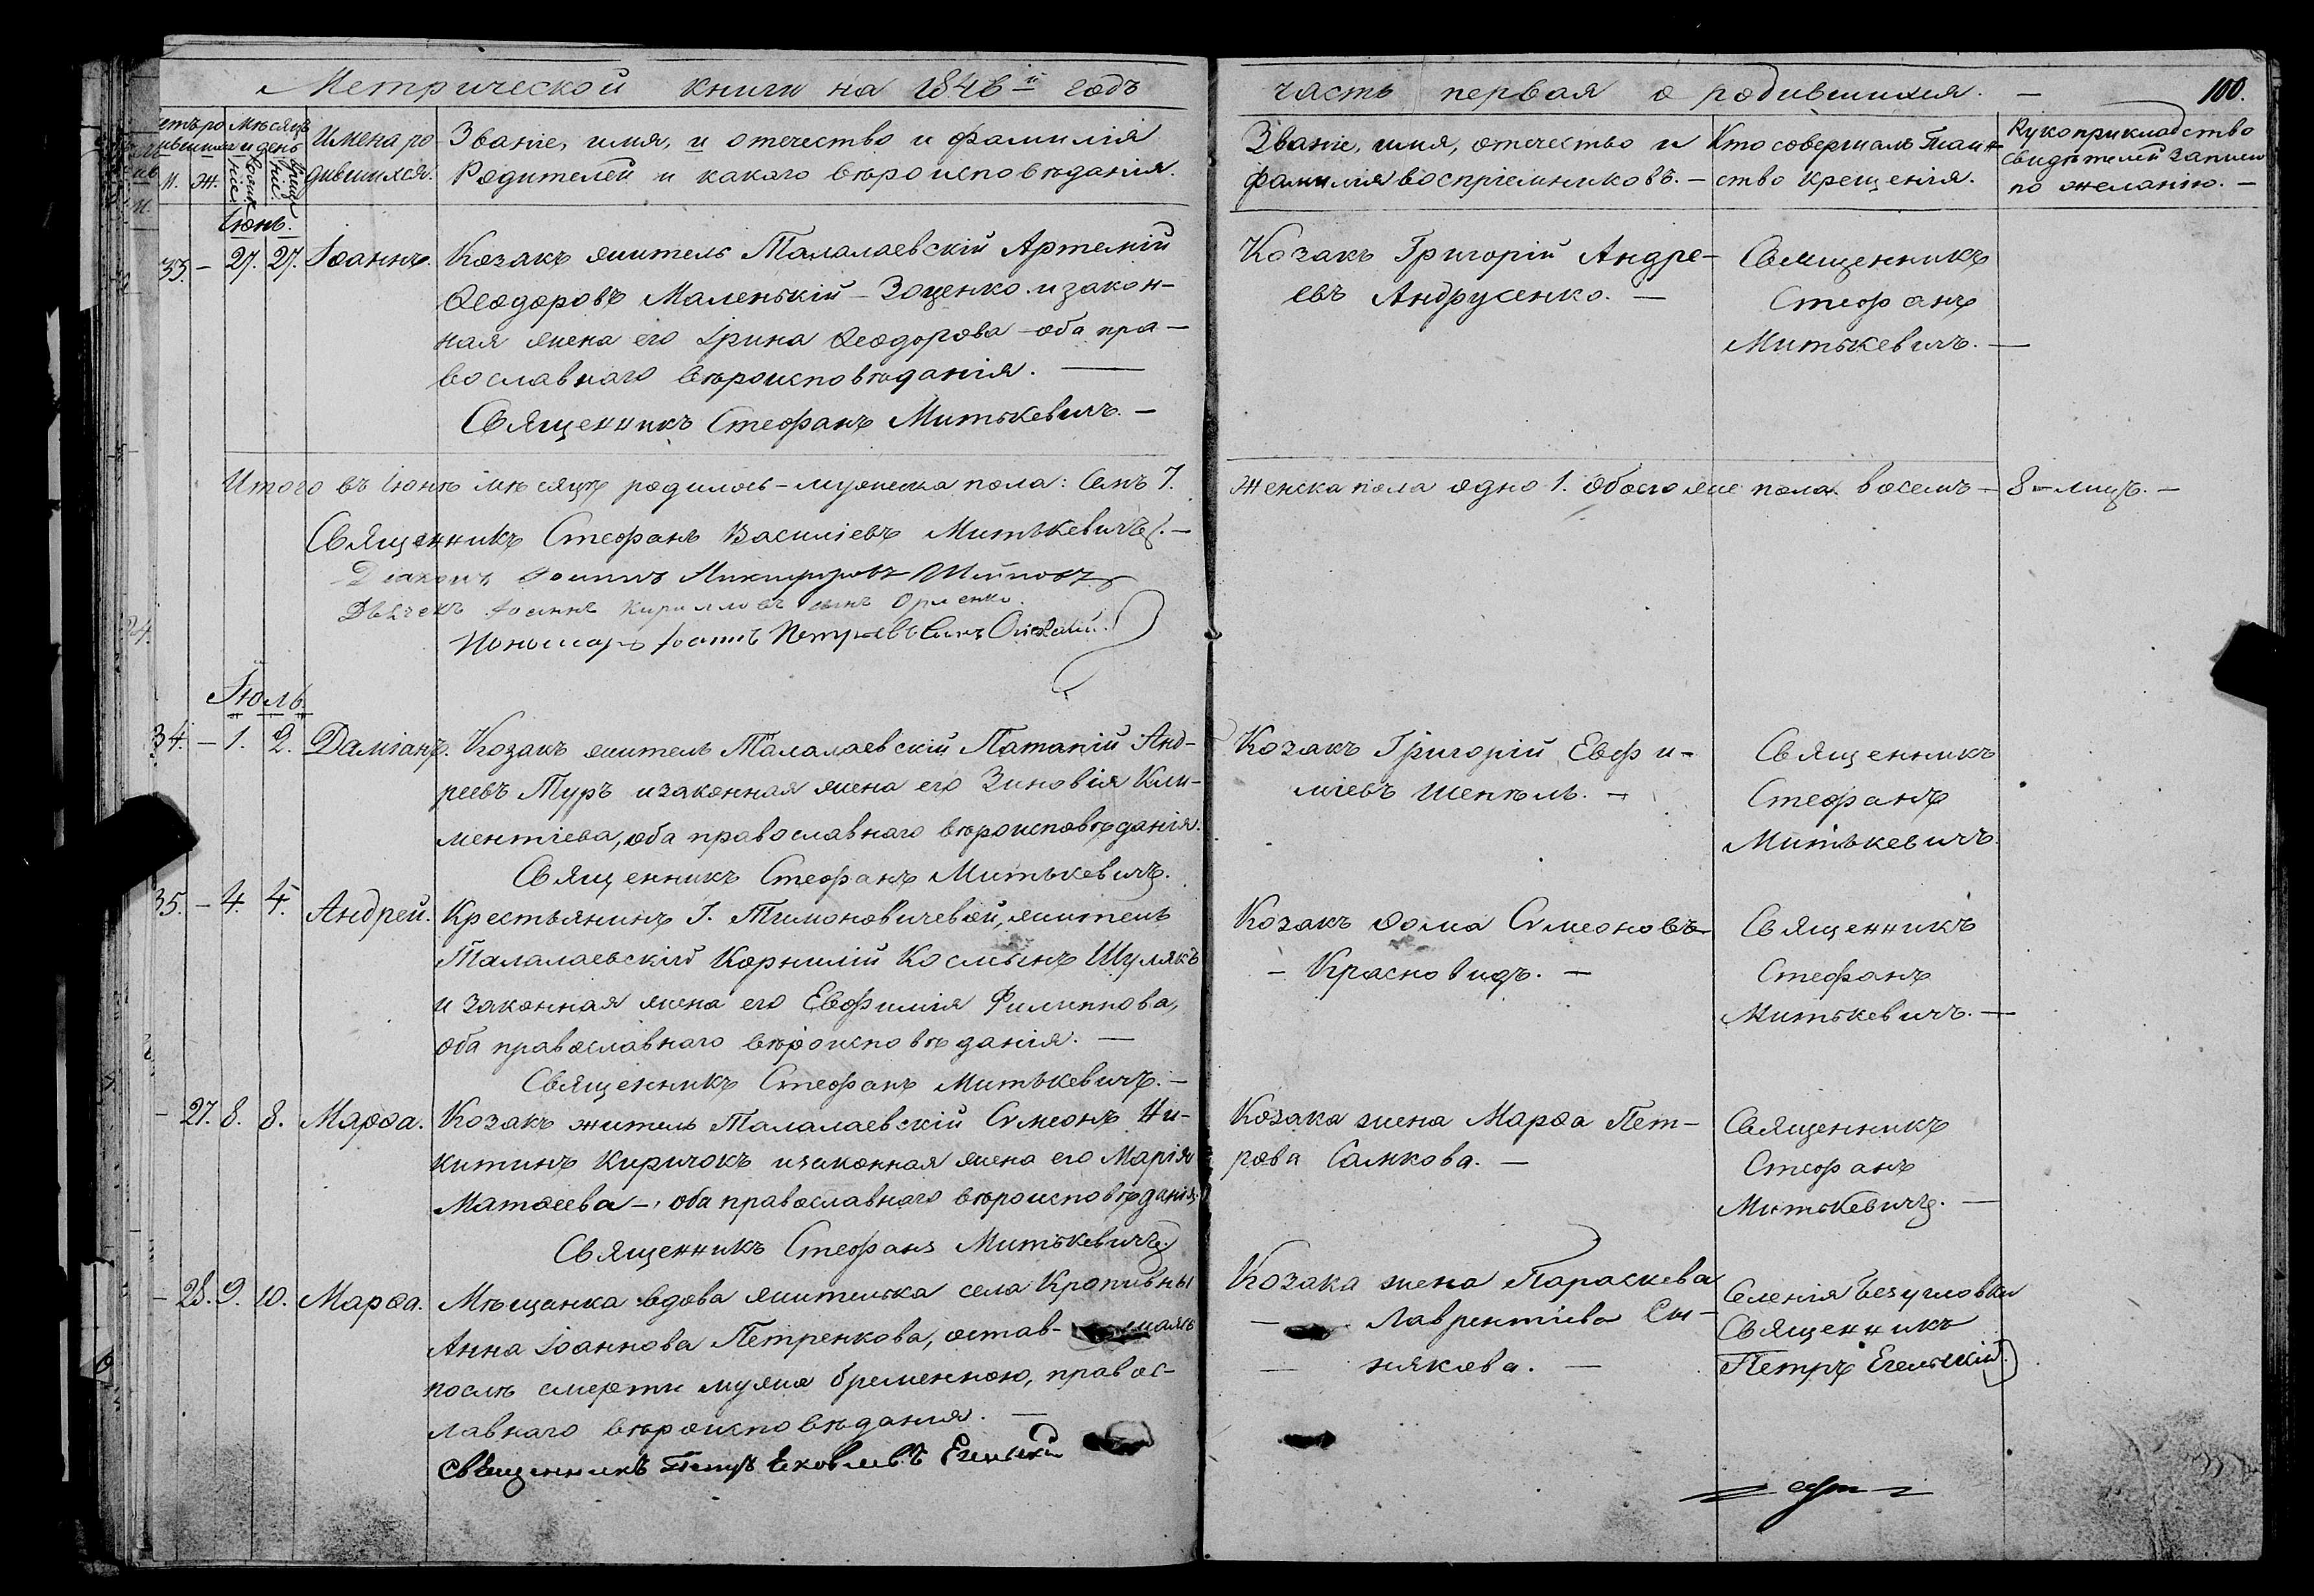 Метрической книги на 1846й годъ
часть первая о родившихся. —
100.
Мѣсяцъ
и день
М. Ж.
Имена ро
дившихся.
Званіе, имя, и отечество и фамилія
Родителей и какого вѣроисповѣданія.
Званіе, имя, отечество и
фамилія воспріемниковъ. —
Кто совершалъ Таин-
ство крещенія.
Рукоприкладство
свидѣтелей записи
по желанію. —
Іюнь.
33. — 27. 27. Іоаннъ.
Козакъ житель Талалаевскій Артемій
Ѳеодоровъ Маленькій — Зоценко и закон-
ная жена его Ірина Ѳеодорова — оба пра-
вославнаго вѣроисповѣданія. —
Священникъ Стефанъ Митькевичъ. —
Козакъ Григорій Андре-
евъ Андрусенко. —
Священникъ
Стефанъ
Митькевичъ. —
Итого въ Іюнѣ мѣсяцѣ родилось — мужеска пола: семъ 7.
женска пола одно 1. Обоего же пола восемъ — 8 — лицъ. —
Священникъ Стефанъ Василіевъ Митькевичъ. —
Діаконъ Іоаннъ
Дьячекъ Іоаннъ Кирилловъ сынъ Орленко.
Пономарь Іоаннъ Петровъ Сынъ
Іюль.
34. — 1. 2. Даміанъ.
Козакъ житель Талалаевскій Патапій Анд-
реевъ Туръ и законная жена его Зиновія Кли-
ментіева, оба православнаго вѣроисповѣданія.
Священникъ Стефанъ Митькевичъ.
Козакъ Григорій Евфи-
міевъ Шепель. —
Священникъ
Стефанъ
Митькевичъ.
35. — 4. 4. Андрей.
Крестьянинъ Г. Тимоновичевой, житель
Талалаевскій Корнилій Косминъ Шулякъ
и законная жена его Евфимія Филиппова,
оба православнаго вѣроисповѣданія. —
Священникъ Стефанъ Митькевичъ. —
Козакъ Ѳома Сѵмеоновъ
— Красновидъ. —
Священникъ
Стефанъ
Митькевичъ. —
— 27. 8. 8. Марѳа.
Козакъ житель Талалаевскій Сѵмеонъ Ни-
китинъ Киричокъ и законная жена его Марія
Матѳеева —, оба православнаго вѣроисповѣданія.
Священникъ Стефанъ Митькевичъ.
Козака жена Марѳа Пет-
рова Самкова. —
Священникъ
Стефанъ
Митькевичъ. —
— 28. 9. 10. Марѳа.
Мѣщанка вдова жителька села Кропивны
Анна Іоаннова Петренкова, остав- шаяся
послѣ смерти мужа бременною, правос-
лавнаго вѣроисповѣданія. —
Священникъ Петръ Яковлевъ Егельскій
Козака жена Параскева
— Лаврентіева Сы-
— някова. —
Селенія Безугловки
Священникъ
Петръ Егельскій.